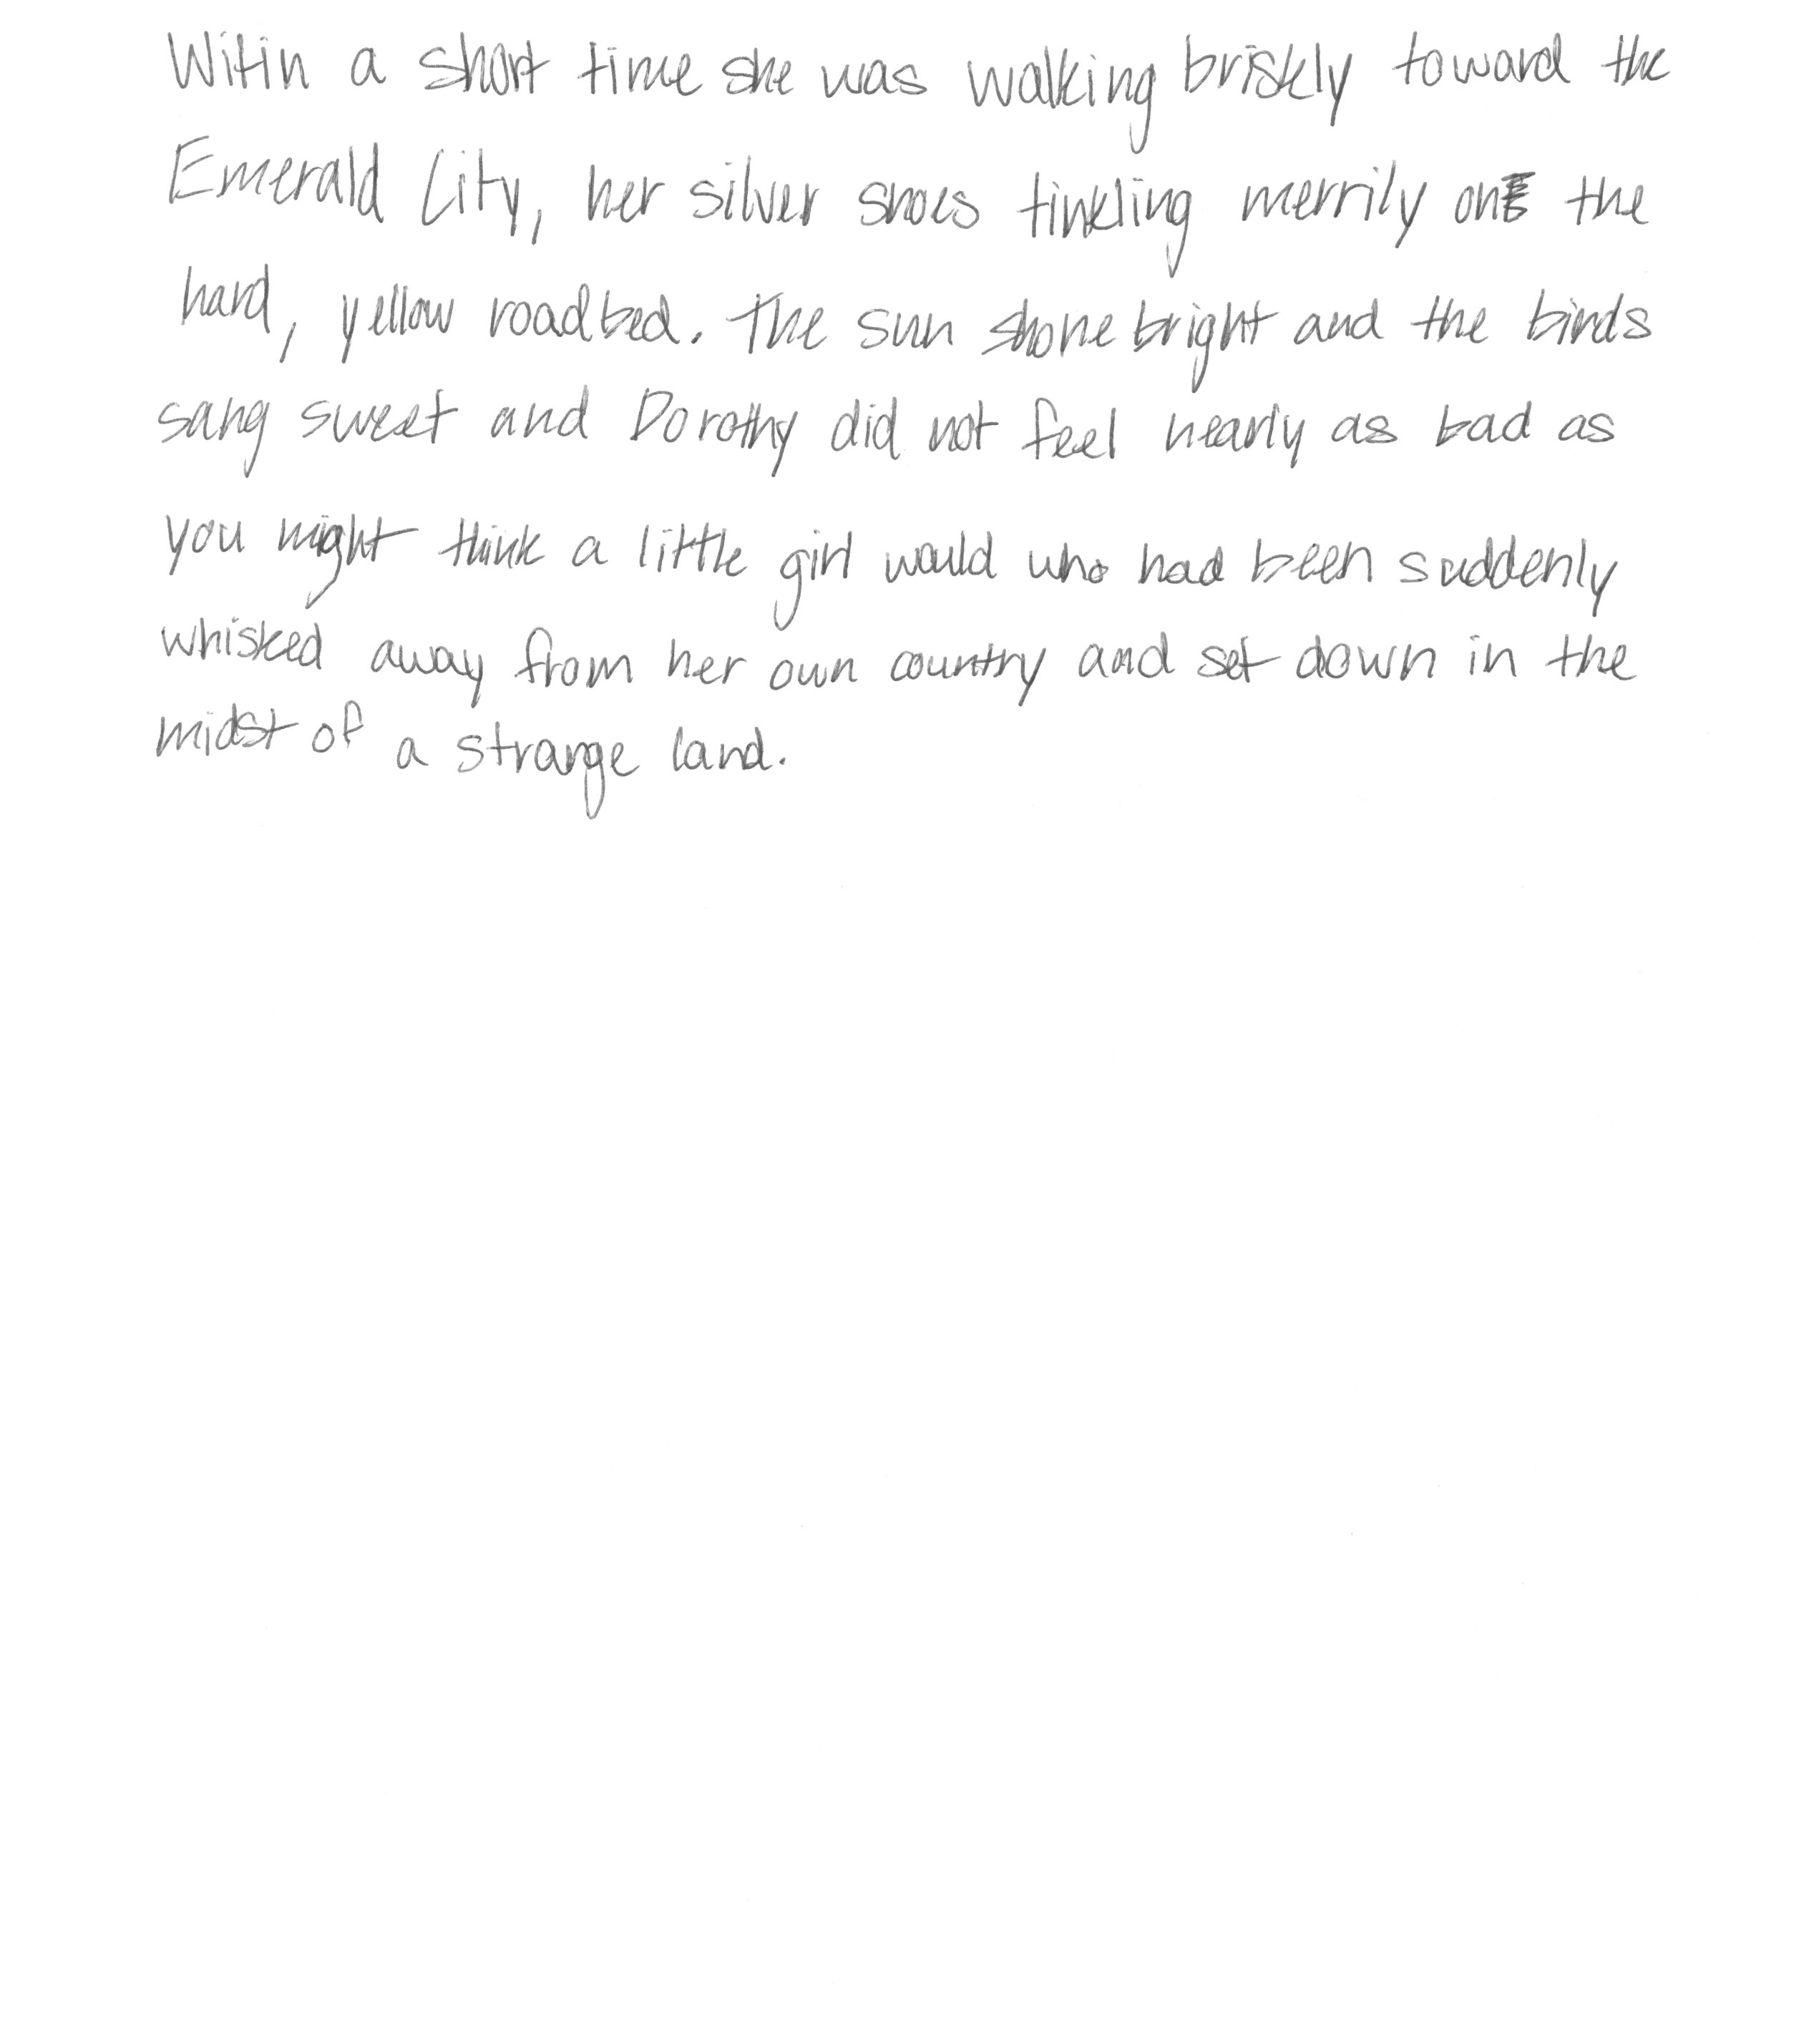 Witin a short time she was walking briskly toward the
Emerald City, her silver shoes tinkling merrily on the
hard, yellow roadbed. The sun shone bright and the birds
sang sweet and Dorothy did not feel nearly as bad as
you might think a little girl would who had been suddenly
whisked away from her own country and set down in the
midst of a strange land.